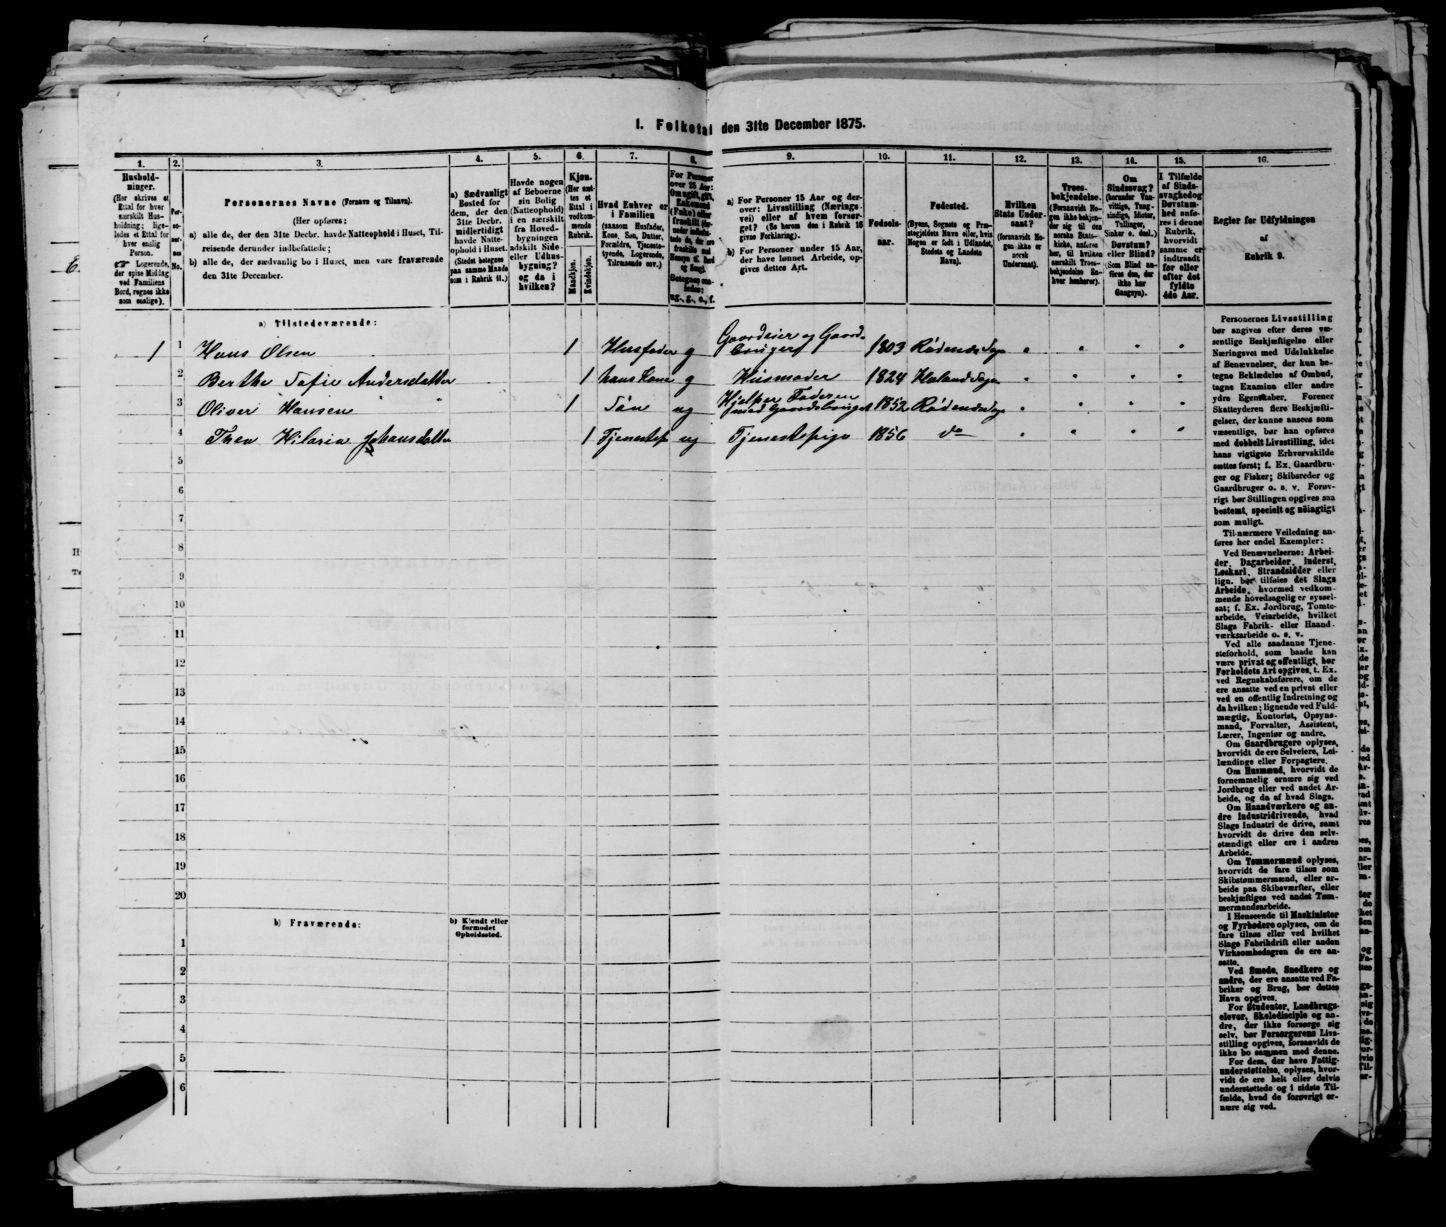 I. Folketal den 31te December 1875.
1. 2. 3. 4. 5. 6. 7. 8. 9. 10. 11. 12. 13. 14. 15. 16.
Hushold-
ninger.
(Her skrives et
Ettal for hver
særskilt Hus-
holdning; lige-
ledes et Ettal for
hver enslig
Person.
☞ Logerende,
der spise Middag
ved Familiens
Bord, regnes ikke
som enslige).
Per-
so-
ner-
nes
No.
Personernes Navne (Fornavn og Tilnavn).
(Her opføres:
a) alle de, der den 31te Decbr. havde Natteophold i Huset, Til-
reisende derunder indbefattede;
b) alle de, der sædvanlig bo i Huset, men vare fraværende
den 31te December.
a) Sædvanligt
Bosted for
dem, der den
31te Decbr.
midlertidigt
havde Natte-
ophold i Huset.
(Stedet betegnes
paa samme Maade
som i Rubrik 11.)
Havde nogen
af Beboerne
sin Bolig
(Natteophold)
i en særskilt
fra Hoved-
bygningen
adskilt Side-
eller Udhus-
bygning?
og da i
hvilken?
Kjøn.
(Her sæt-
tes et
Ettal i
vedkom-
mende
Rubrik.
Mandkjøn.
Kvindekjøn.
Hvad Enhver er
i Familien
(saasom Husfader,
Kone, Søn, Datter,
Forældre, Tjeneste-
tyende, Logerende,
Tilreisende osv.)
For Personer
over 15 Aar:
Om ugift, gift,
Enkemand
(Enke) eller
fraskilt
Betegnes saa-
ledes:
ug., g., e., f.
a) For Personer 15 Aar og der-
over: Livsstilling (Nærings-
vei) eller af hvem forsør-
get? (Se herom den i Rubrik 16
givne Forklaring).
b) For Personer under 15 Aar,
der have lønnet Arbeide, op-
gives dettes Art.
Fødsels-
aar.
Fødested.
(Byens, Sognets og Præ-
stegjeldets Navn eller, hvis
Nogen er født i Udlandet,
Stedets og Landets
Navn).
Hvilken
Stats Under-
saat?
(forsaavidt No-
gen ikke er
norsk
Undersaat).
Troes-
bekjendelse.
(Forsaavidt No-
gen ikke bekjen-
der sig til den
norske Stats-
kirke, anføres
her, til hvilken
særskilt Troes-
bekjendelse En-
hver henhører).
Om
Sindssvag?
(herunder Van-
vittige, Tung-
sindige, Idioter,
Tullinger,
Sinker o. desl.).
Døvstum?
eller Blind?
(Som Blind an-
føres den, der
ikke har
Gangsyn).
I Tilfælde
af Sinds-
svaghed og
Døvstum-
hed anfø-
res i denne
Rubrik,
hvorvidt
samme er
indtraadt
før eller
efter det
fyldte
4de Aar.
Regler for Udfyldningen
af
Rubrik 9.
a) Tilstedeværende:
1 1 Hans Olsen 1 Husfader g Gaardeier og Gaard-
bruger 1803 Rødenæs Sogn " " " "
2 Berthe Sofie Andersdatter 1 hans Kone g Husmoder 1824 Høland Sogn " " " "
3 Oliver Hansen 1 Søn ug Hjelper Faderen
med Gaardsbruget 1852 Rødenæs Sogn " " " "
4 Thea Hilaria Johansdatter 1 Tjenestep ug Tjenestepige 1856 do " " " "
5
6
7
8
9
10
11
12
13
14
15
16
17
18
19
20
b) Fraværende:
b) Kjendt eller
formodet
Opholdssted.
1
2
3
4
5
6
Personernes Livsstilling
bør angives efter deres væ-
sentlige Beskjæftigelse eller
Næringsvei med Udelukkelse
af Benævnelser, der kun be-
tegne Beklædelse af Ombud,
tagne Examina eller andre
ydre Egenskaber. Forener
Skatteyderen flere Beskjæfti-
gelser, der kunne ansees som
væsentlige, bør han opføres
med dobbelt Livsstilling, idet
hans vigtigste Erhvervskilde
sættes først; f. Ex. Gaardbru-
ger og Fisker; Skibsreder og
Gaardbruger o. s. v. Forøv-
rigt bør Stillingen opgives saa
bestemt, specielt og nøiagtigt
som muligt.
Til nærmere Veiledning an-
føres her endel Exempler:
Ved Benævnelserne: Arbei-
der, Dagarbeider, Inderst,
Løskarl, Strandsidder eller
lign. bør tilføies det Slags
Arbeide, hvormed vedkom-
mende hovedsagelig er syssel-
sat; f. Ex. Jordbrug, Tomte-
arbeide, Veiarbeide, hvilket
Slags Fabrik- eller Haand-
værksarbeide o. s. v.
Ved alle saadanne Tjene-
steforhold, som baade kan
være privat og offentligt, bør
Forholdets Art opgives, t. Ex.
ved Regnskabsførere, om de
ere ansatte ved en privat eller
ved en offentlig Indretning og
da hvilken; lignende ved Fuld-
mægtig, Kontorist, Opsyns-
mand, Forvalter, Assistent,
Lærer, Ingeniør og andre.
Om Gaardbrugere oplyses,
hvorvidt de ere Selveiere, Lei-
lændinge eller Forpagtere.
Om Husmænd, hvorvidt de
fornemmelig ernære sig ved
Jordbrug eller ved andet Ar-
beide, og da af hvad Slags.
Om Haandværkere og an-
dre Industridrivende, hvad
Slags Industri de drive, samt
hvorvidt de drive den selv-
stændigt eller ere i andres
Arbeide.
Om Tømmermænd oplyses,
hvorvidt de fare tilsøs som
Skibstømmermænd, eller ar-
beide paa Skibsværfter, eller
beskjæftiges ved andet Tøm-
mermandsarbeide.
I Henseende til Maskinister
og Fyrbødere oplyses, om de
fare tilsøs eller ved hvilket
Slags Fabrikdrift eller anden
Virksomhedsgren de ere an-
satte.
Ved Smede, Snedkere og
andre, der ere ansatte ved Fa-
briker og Brug, bør dettes
Navn opgives.
For Studenter, Landbrugs-
elever, Skoledisciple og an-
dre, der ikke forsørge sig
selv, bør Forsørgerens Livs-
stilling opgives, forsaavidt de
ikke bo sammen med denne.
For dem, der have Fattig-
understøttelse, oplyses, hvor-
vidt de ere helt eller delvis
understøttede og i sidste Til-
fælde, hvad de forøvrigt er-
nære sig ved.